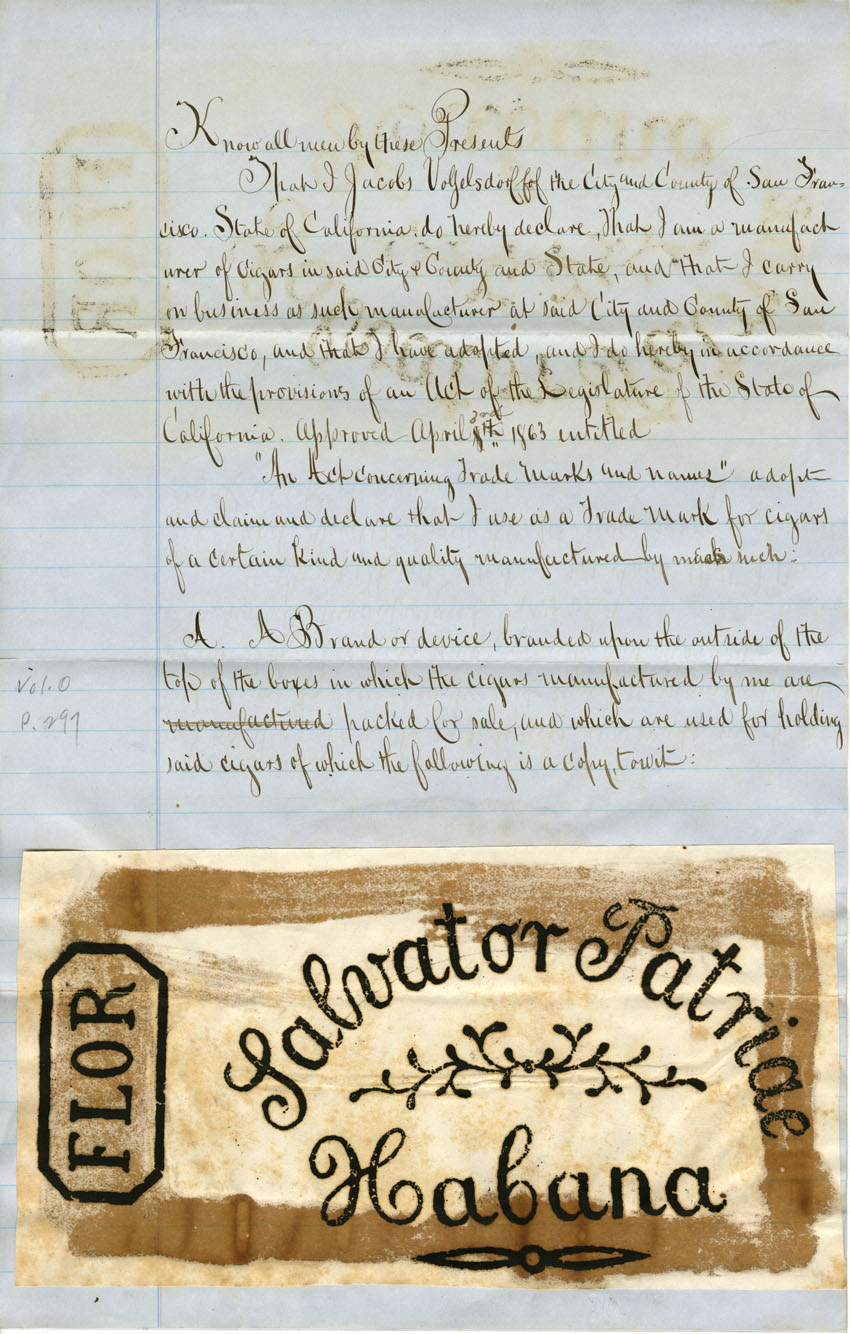 Know all men by these Presents
That I Jacobs Vogelsdorff of the City and County of San Fran-
cisco. State of California. do hereby declare, That I am a manufact
urer of Cigars in said City & County and State, and that I carry
on business as such manufacturer at said City and County of San
Francisco, and that I have adopted, and I do hereby in accordance
with the provisions of an Act of the Legislature of the State of
California. Approved April 2nd 1863 entitled
"An Act concerning Trade Marks and names" adopt
and claim and declare that I use as a Trade Mark for cigars
of a certain kind and quality manufactured by such:
A. A Brand or device, branded upon the outside of the
top of the boxes in which the cigars manufactured by me are
manufactured packed for sale, and which are used for holding
said cigars of which the following is a copy, towit:
Vol. O
P. 297
FLOR
Salvator Patriae
Habana